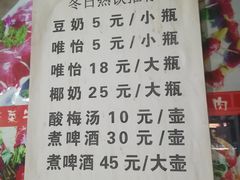 冬日热饮推荐
豆奶 5 元/小瓶
唯怡 5 元/小瓶
唯怡 18 元/大瓶
椰奶 25 元/大瓶
酸梅汤 10 元/壶
煮啤酒 30 元/壶
煮啤酒 45 元/大壶